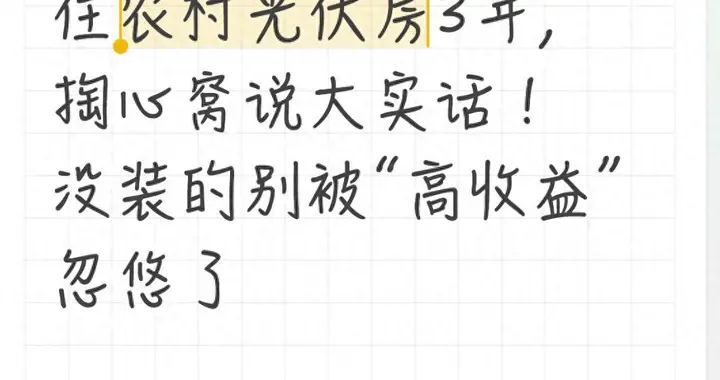 住农村光伏房3年,
掏心窝说大实话!
没装的别被“高收益”
忽悠了